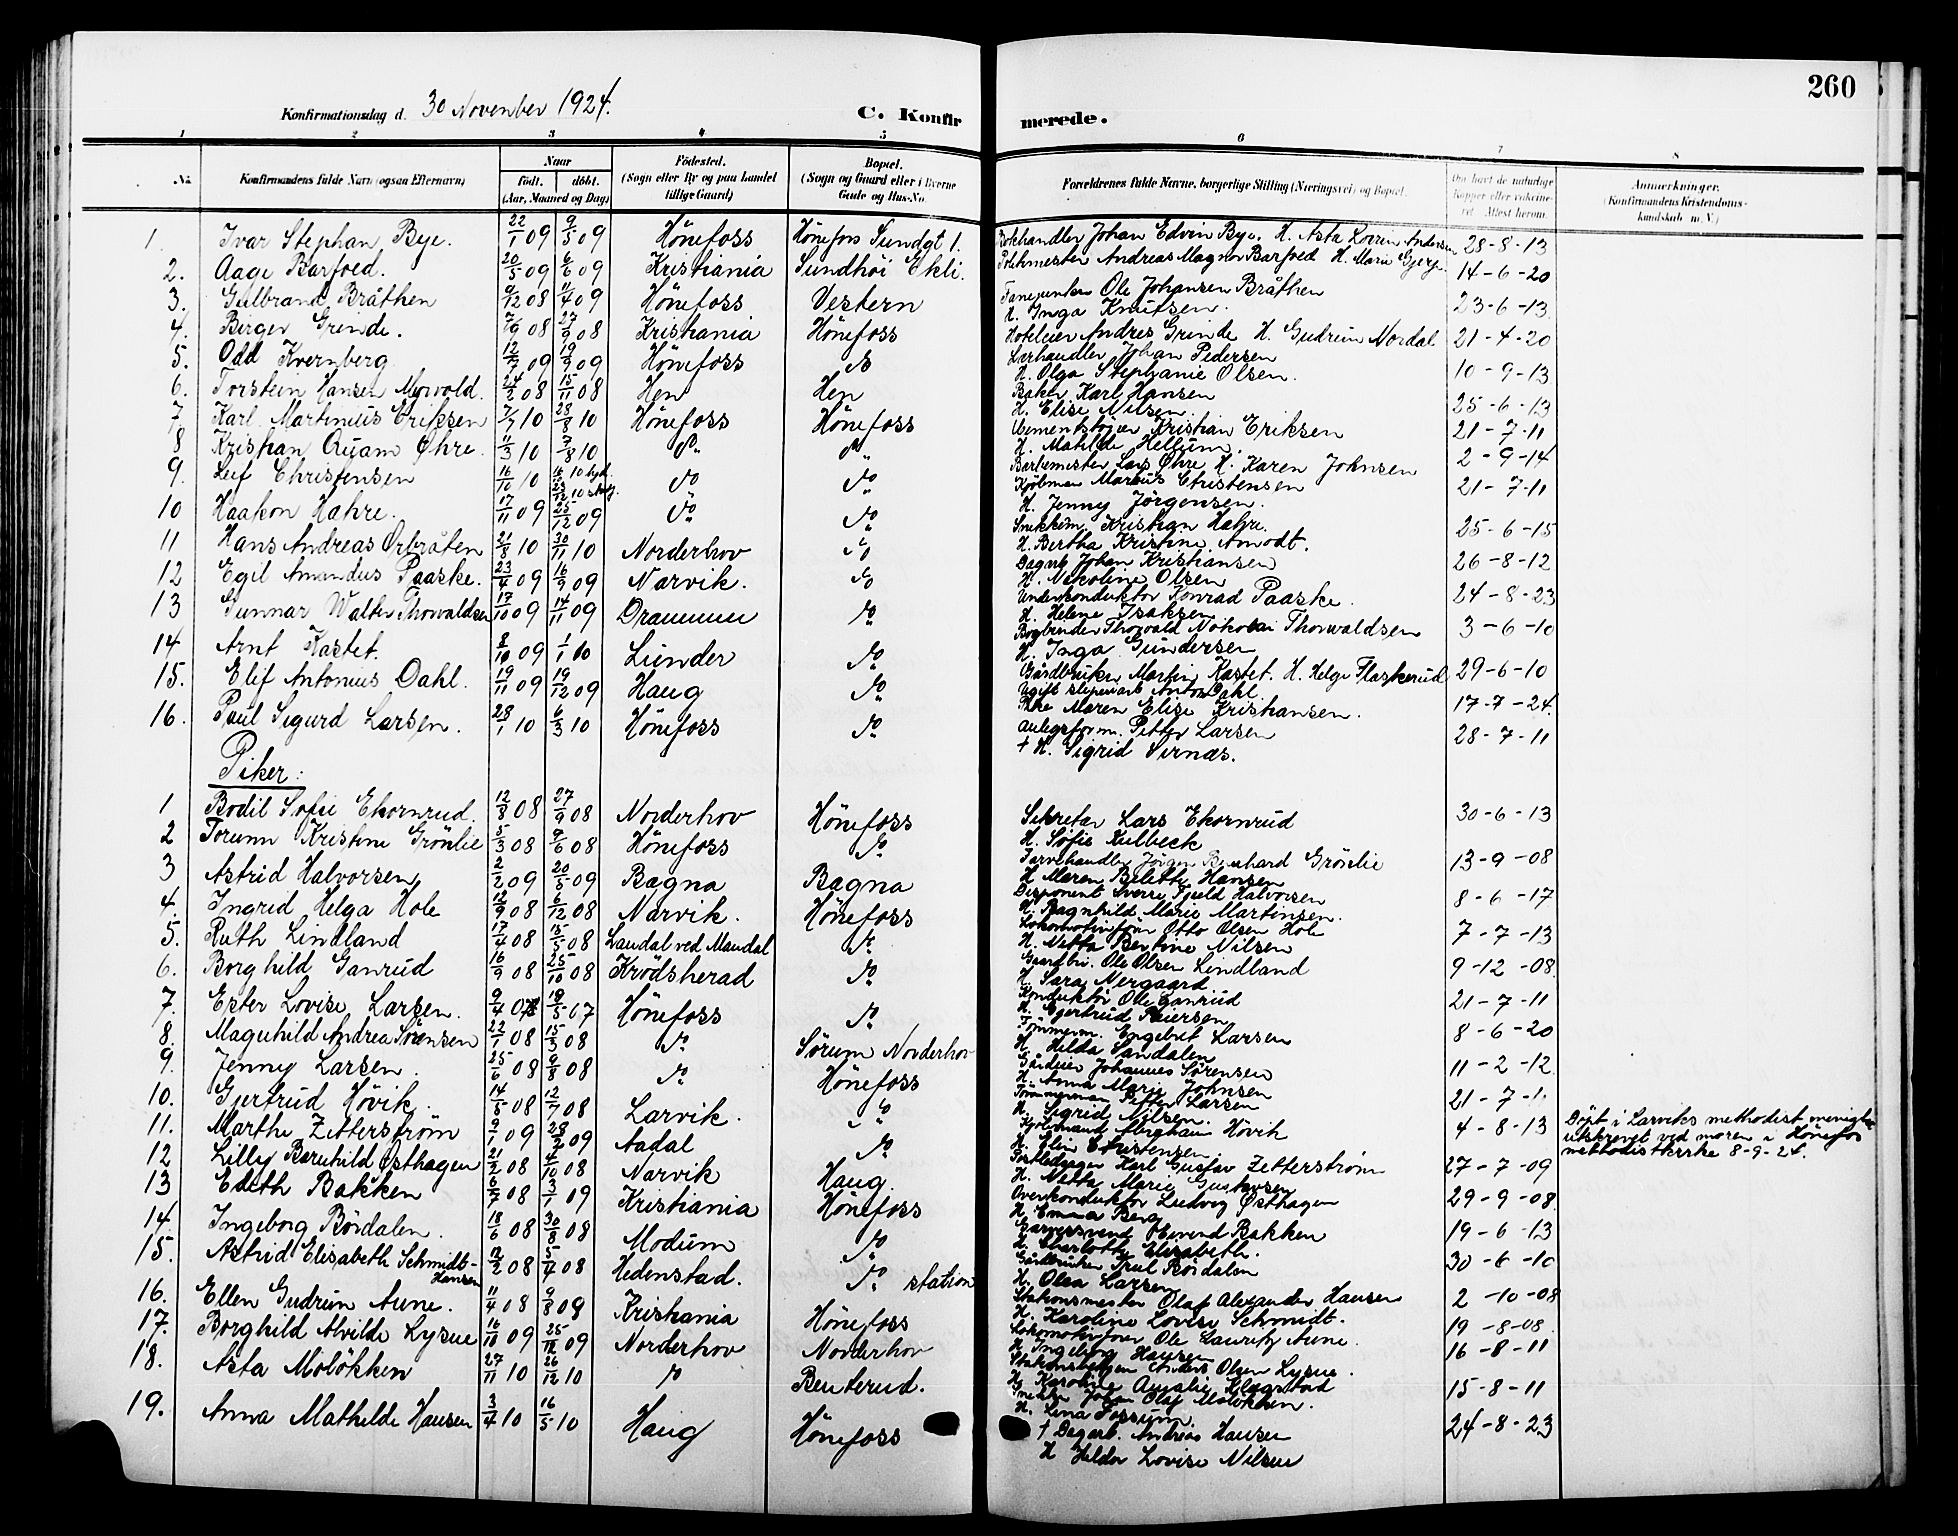 260
Konfirmationsdag d. 30 November 1924.
C. Konfirmerede.
1 2 3 4 5 6 7 8
No.
Konfirmandens fulde Navn (ogsaa Efternavn)
Naar
født. døbt.
(Aar, Maaned og Dag)
Födested.
(Sogn eller By og paa Landet
tillige Gaard)
Bopæl.
(Sogn og Gaard eller i Byerne
Gade og Hus-No.
Forældrenes fulde Navne, borgerlige Stilling (Næringsvei) og Bopæl.
Om havt de naturlige
Kopper eller vaccine-
ret. Attest herom.
Anmærkninger.
(Konfirmandens Kristendoms-
kundskab m. V.)
1. Ivar Stephan Bye. 22/1 09 9/5 09 Hönefoss Hönefoss Sundgt 1. Johan Edvin Bye. H. Asta Andersen 28-8-13
2. Aage Barfoed. 20/5 09 6/6 09 Kristiania Sundhöi Ekli. Andreas Magnus Barfoed H. Marie 14-6-20
3. Gulbrand Bråthen 9/12 08 11/4 09 Hönefoss Vestern Ole Johansen Bråthen
H. Inga Knutsen. 23-6-13
4. Birger Grinde. 7/9 08 27/9 08 Kristiania Hönefoss Hoteleier Andres Grinde H. Gudrun Nordal 21-4-20
5. Odd Kvernberg 12/7 09 19/9 09 Hönefoss do Lærhandler Johan Pedersen
H. Olga Stephanie Olsen. 10-9-13
6. Torstein Hansen Myrvold. 24/2 08 15/11 08 Hen Hen Baker Karl Hansen
H. Elise Nilsen. 25-6-13
7 Karl Martinius Eriksen 7/7 10 28/8 10 Hönefoss Hönefoss Kristian Eriksen
H. Matilde Hellum. 21-7-11
8 Kristian Quam Øhre. 11/3 10 7/8 10 do do Lars Øhre H. Karen Johnsen 2-9-14
9. Leif Christensen 16/10 10 do do Kjöbman Marius Christensen
H. Jenny Jörgensen. 21-7-11
10 Haakon Hahre. 17/11 09 25/12 09 do do Kristian Hahre.
H. Bertha Kristine Amodt. 25-6-15
11 Hans Andreas Ørbråten 21/8 10 30/11 10 Norderhov do Johan Kristiansen
H. Nikoline Olsen 26-8-12
12 Egil Amandus Paaske. 23/4 09 16/9 09 Narvik. do Underkonduktör Konrad Paaske.
H. Helene Isaksen 24-8-23
13 Gunnar Walter Thorvaldsen 17/10 09 14/11 09 Drammen do Bogbinder Thorvald Nikolai Thorwaldsen
H. Inga Gundersen 3-6-10
14 Arnt Kastet. 8/10 09 1/1 10 Lunder do Gårdbruker Martin Kastet. H. Helge Flaskerud 29-6-10
15. Elif Antonius Dahl. 19/11 09 19/12 09 Haug do Ugift sliperiarb Anton Dahl.
Pike Maren Elise Kristiansen. 17-7-24.
16. Paul Sigurd Larsen. 28/1 10 6/3 10 Hönefoss do Petter Larsen
+ H. Sigrid Sirnæs. 28-7-11
Piker:
1 Bodil Sofie Ekornrud. 12/8 08 27/9 08 Norderhov Hönefoss Sekretær Lars Ekornrud
H. Sofie Kulbeck 30-6-13
2 Torunn Kristine Grönlie 5/3 08 9/6 08 Hönefoss do Farvehandler Jörgen Bernhard Grönlie
H. Maren Hansen 13-9-08
3 Astrid Halvorsen 2/2 09 20/5 09 Bagna Bagna Disponent Sverre Fjeld Halvorsen
H. Ragnhild Marie Martinsen. 8-6-17
4. Ingrid Helga Hole 12/9 08 6/12 08 Narvik. Hönefoss Lokomotivförer Otto Olsen Hole
H. Netta Bertine Nilsen 7-7-13
5. Ruth Lindland 17/4 08 15/5 08 Laudal ved Mandal do Gaardbr. Ole Olsen Lindland
H. Sara Mergaard 9-12-08.
6. Borghild Ganrud 16/9 08 25/10 08 Krödsherad do Konduktör Ole Ganrud
H. Gjertrud Reiersen 21-7-11
7. Ester Lovise Larsen. 9/4 07 19/5 07 Hönefoss do Tömmerm. Engebret Larsen
H. Hilda Sandalen 8-6-20
8. Magnhild Andrea Sörensen 22/1 08 15/3 08 do Sørum Norderhov Gårdeier Johannes Sørensen
H. Anna Marie Johnsen 11-2-12.
9. Jenny Larsen. 25/6 08 9/8 08 do Hönefoss Tömmerman Petter Larsen
H. Sigrid Nilsen. 21-7-1
10. Gjertrud Hövik. 14/5 08 12/7 08 Larvik. do Hövik
H. Elin Christensen. 4-8-13 Döpt i Larviks methodist menighet
utskrevet ved moren i Hönefos
methodistkirke 8-9-24.
11. Marthe Zetterström 9/1 09 28/2 09 Aadal do Karl Gustav Zetterström
H. Netta Marie Gustavsen 27-7-09
12 Lilly Bernhild Østhagen 21/2 08 4/10 08 Narvik Haug. Overkonduktör Ludvig Østhagen
H. Emma Berg 29-9-08.
13 Edith Bakken 6/7 08 3/1 09 Kristiania Hönefoss Garversvend Bakken
H. Charlotte Elisabeth. 19-6-13
14. Ingeborg Bördalen. 18/6 08 30/8 08 Modum do Gårdbruker Trul Bördalen
H. Olga Larsen 30-6-10
15. Astrid Elisabeth Schmidt-
Hansen 12/2 08 5/4 08 Hedenstad. do station Stationsmester Olaf Alexander Hansen
H. Karoline Lovise Schmidt. 2-10-08
16. Ellen Gudrun Aune. 11/4 08 9/8 08 Kristiania Hönefoss Lokomotivförer Ole Lauritz Aune.
H. Ingeborg Hansen 19-8-08.
17. Borghild Alvilde Lysne 16/10 09 25/12 09 Norderhov Norderhov Anders Olsen Lysne.
H. Karoline Amalie Klegstad 16-8-11
18. Asta Molökken 27/11 10 26/12 10 do Benterud. Snekker Johan Olaf Molökken.
H. Lina Fossum. 15-8-11
19. Anna Mathilde Hansen 3/4 10 16/5 10 Haug Hönefoss + Dagarb. Andreas Hansen
H Hilda Lovise Nilsen 24-8-23